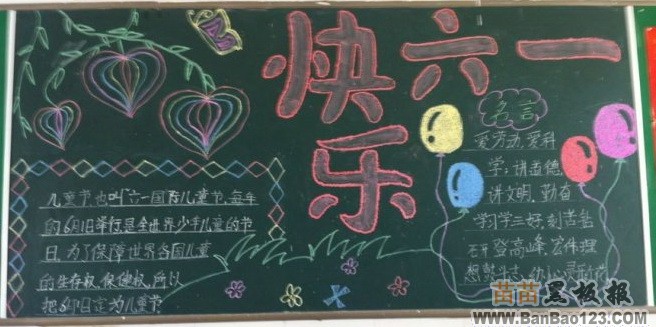 快六一
乐
名言
爱劳动,爱科
学;讲道德
讲文明,勤奋
学习学三好,刻苦钻
研登高峰,宏伟理
想鼓斗志,
儿童节也叫六一国际儿童节,每年
的6月1日举行是全世界少年儿童的节
日,为了保障世界各国儿童
的生存权,保健权,所以
把6月1日定为儿童节
苗苗黑板报
www.BanBao123.com